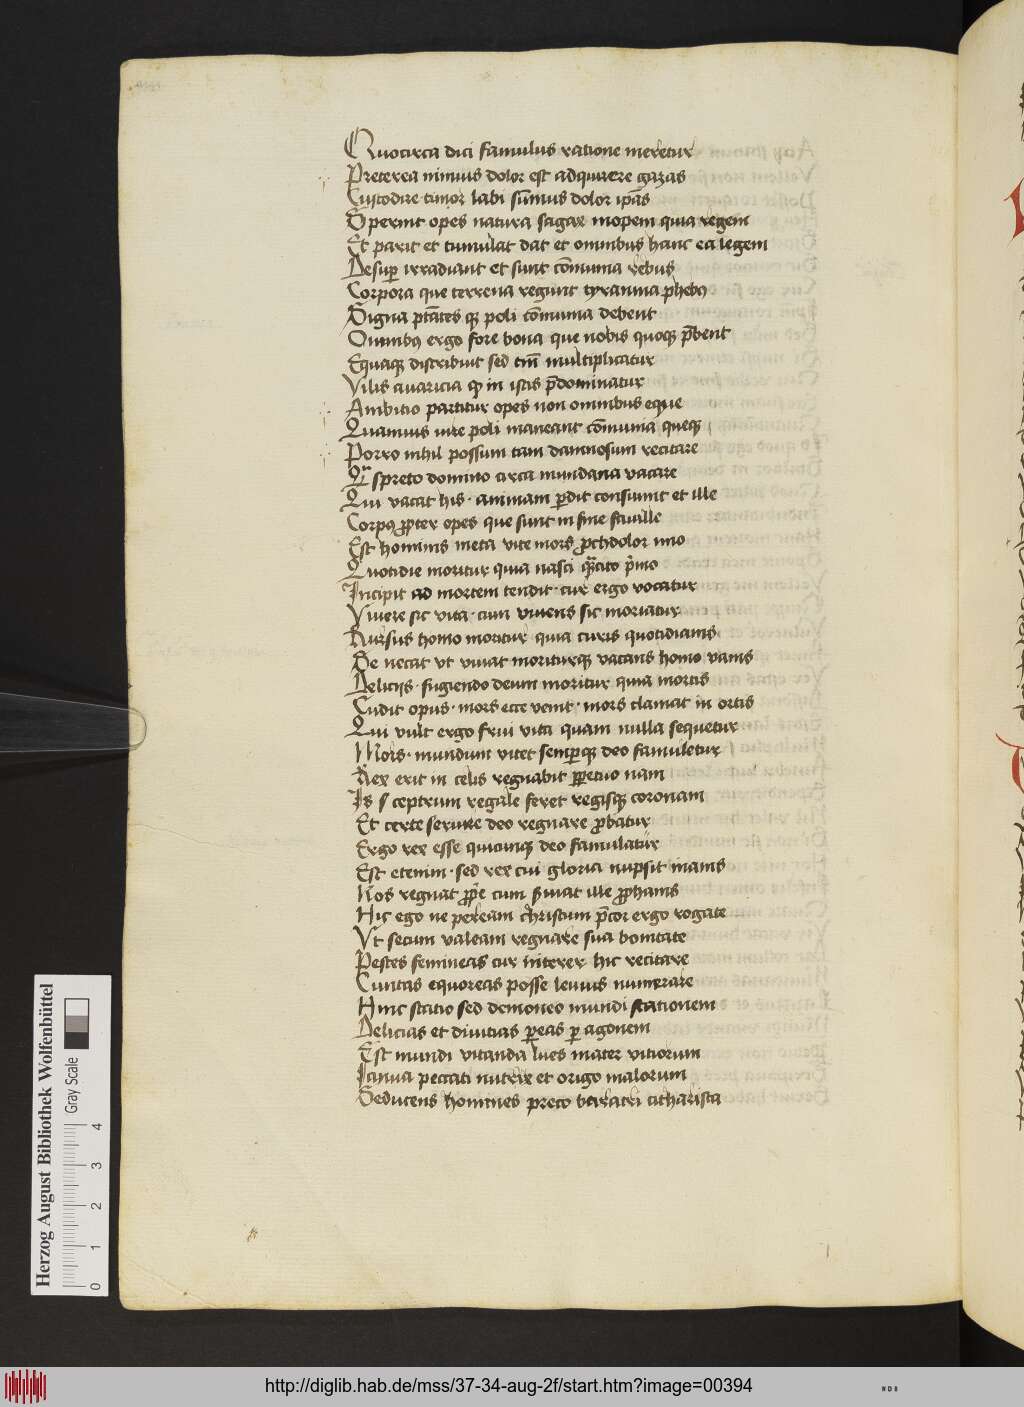 Quocirca dici famulus ratione meretur
Preterea nimius dolor est adquirere gazas
Custodire timor labi sūmus dolor ipās
Sperint opes natura sagax inopem quia regem
Et parit et tumulat dat et omnibus hanc ea legem
Desup irradiant et sunt cōmunia rebus
Corpora que terrena regunt tyrannia phebꝰ
Digna ptātes qꝫ poli cōmunia debent
Omnibꝰ ergo fore bona que nobis quoqꝫ p̄bent
Equaqꝫ distribuit sed tm̄ multiplicatur
Vilis avaricia qꝫ in istis p̄dominatur
Ambitio partitur opes non omnibus eque
Quamuis iure poli maneant cōmunia queqꝫ
Porro nihil possum tam damnosum recitare
Qͣ spreto domino circa mundana vacare
Qui vacat his · animam ꝑdit consumit et ille
Corpꝰ ꝓpter opes que sunt in fine fauille
Est hominis meta vite mors ꝓchdolor imo
Quotidie moritur quia nasci p̄mo
Incipit ad mortem tendit · cur ergo vocatur
Vivere sic vita · cum vivens sic moriatur
Rursus homo moritur quia curis quotidianis
Se necat vt vivat moriturqꝫ vacans homo vanis
Delicijs · fugiendo deum moritur quia mortis
Cudit opus · mors ecce venit · mors clamat in ortis
Qui vult ergo frui vita quam nulla sequetur
Mors · mundum vitet semꝑqꝫ deo famuletur
Rex erit in celis regnabit ꝑpetuo nam
Is sceptrum regale feret regisqꝫ coronam
Et certe seruire deo regnare ꝓbatur
Ergo rex esse quicunqꝫ deo famulatur
Est etenim · sed rex cui gloria nupsit inanis
Nos regnat cum ille ꝓphanis
Hic ego ne peream christum p̄cor ergo rogate
Vt secum valeam regnare sua bonitate
Pestes femineas cur hic recitare
Cunctas equoreas posse leuius numerare
Hinc statio sed demoneo mundi stationem
Delicias et diuitias ꝑeas ꝑ agonem
Est mundi vitanda lues mater vitiorum
Ianua peccati nutrix et origo malorum
Seducens homines preco citharista
Herzog August Bibliothek Wolfenbüttel
Gray Scale
0 1 2 3 4
http://diglib.hab.de/mss/37-34-aug-2f/start.htm?image=00394